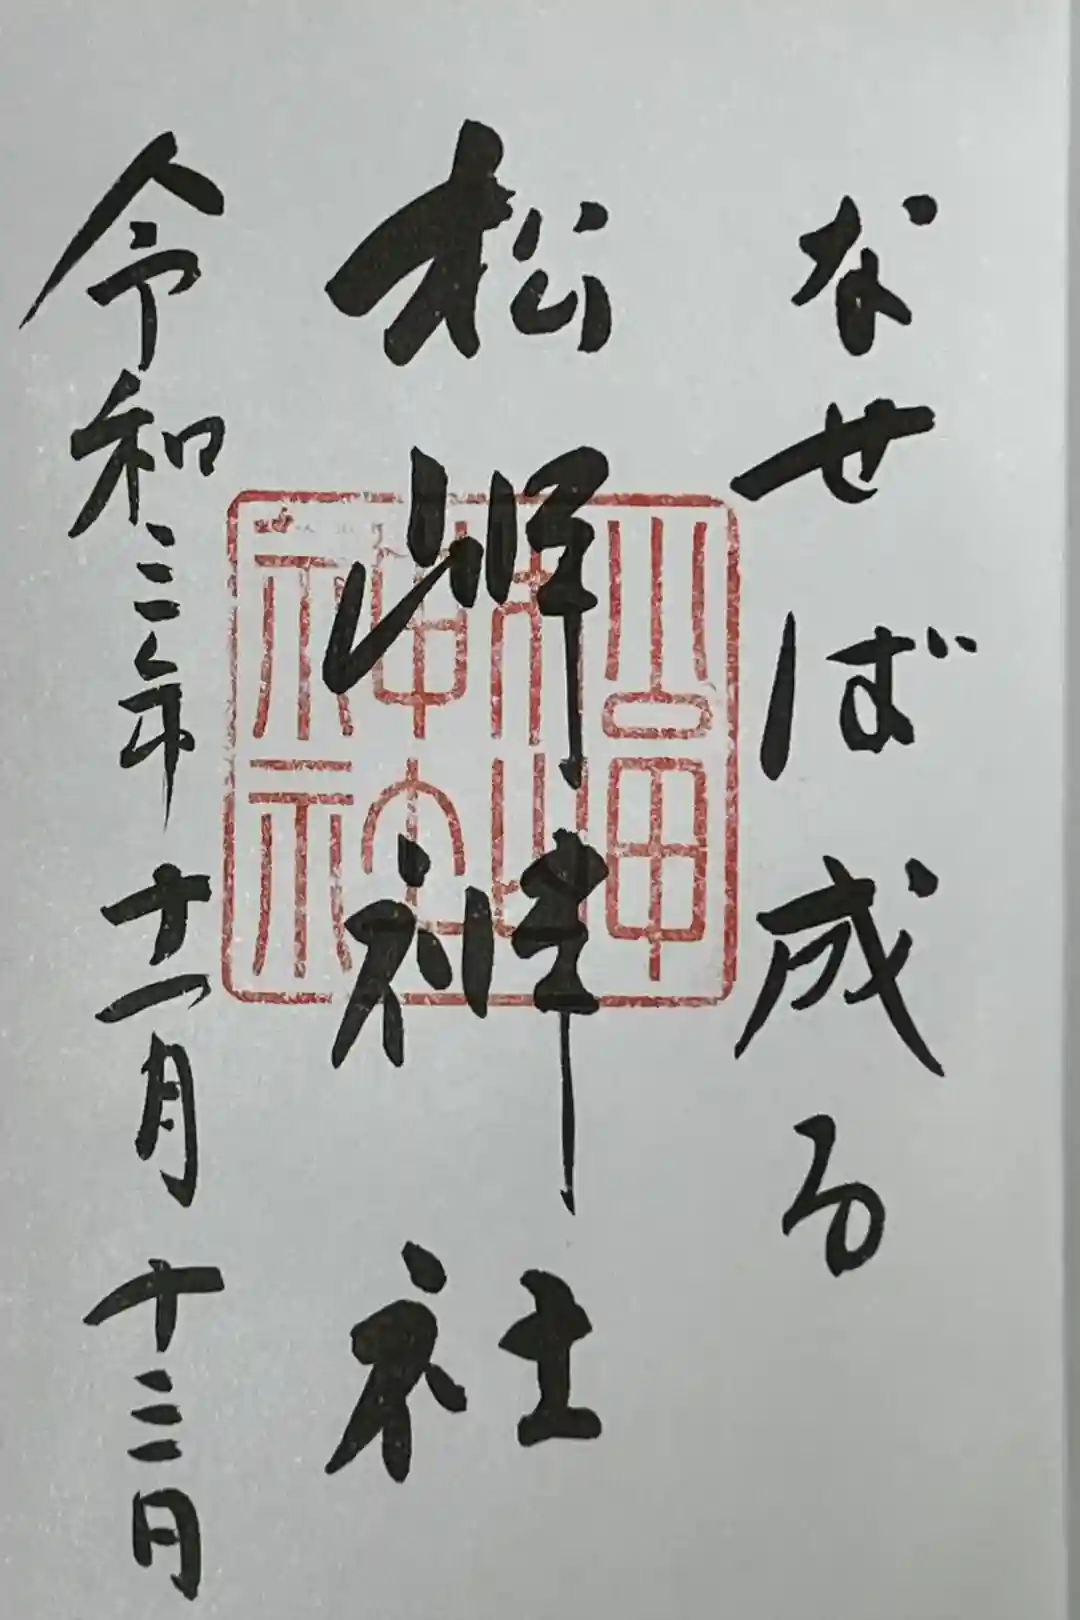 なせば成る
松岬神社
令和三年十一月十三日
松岬
神社